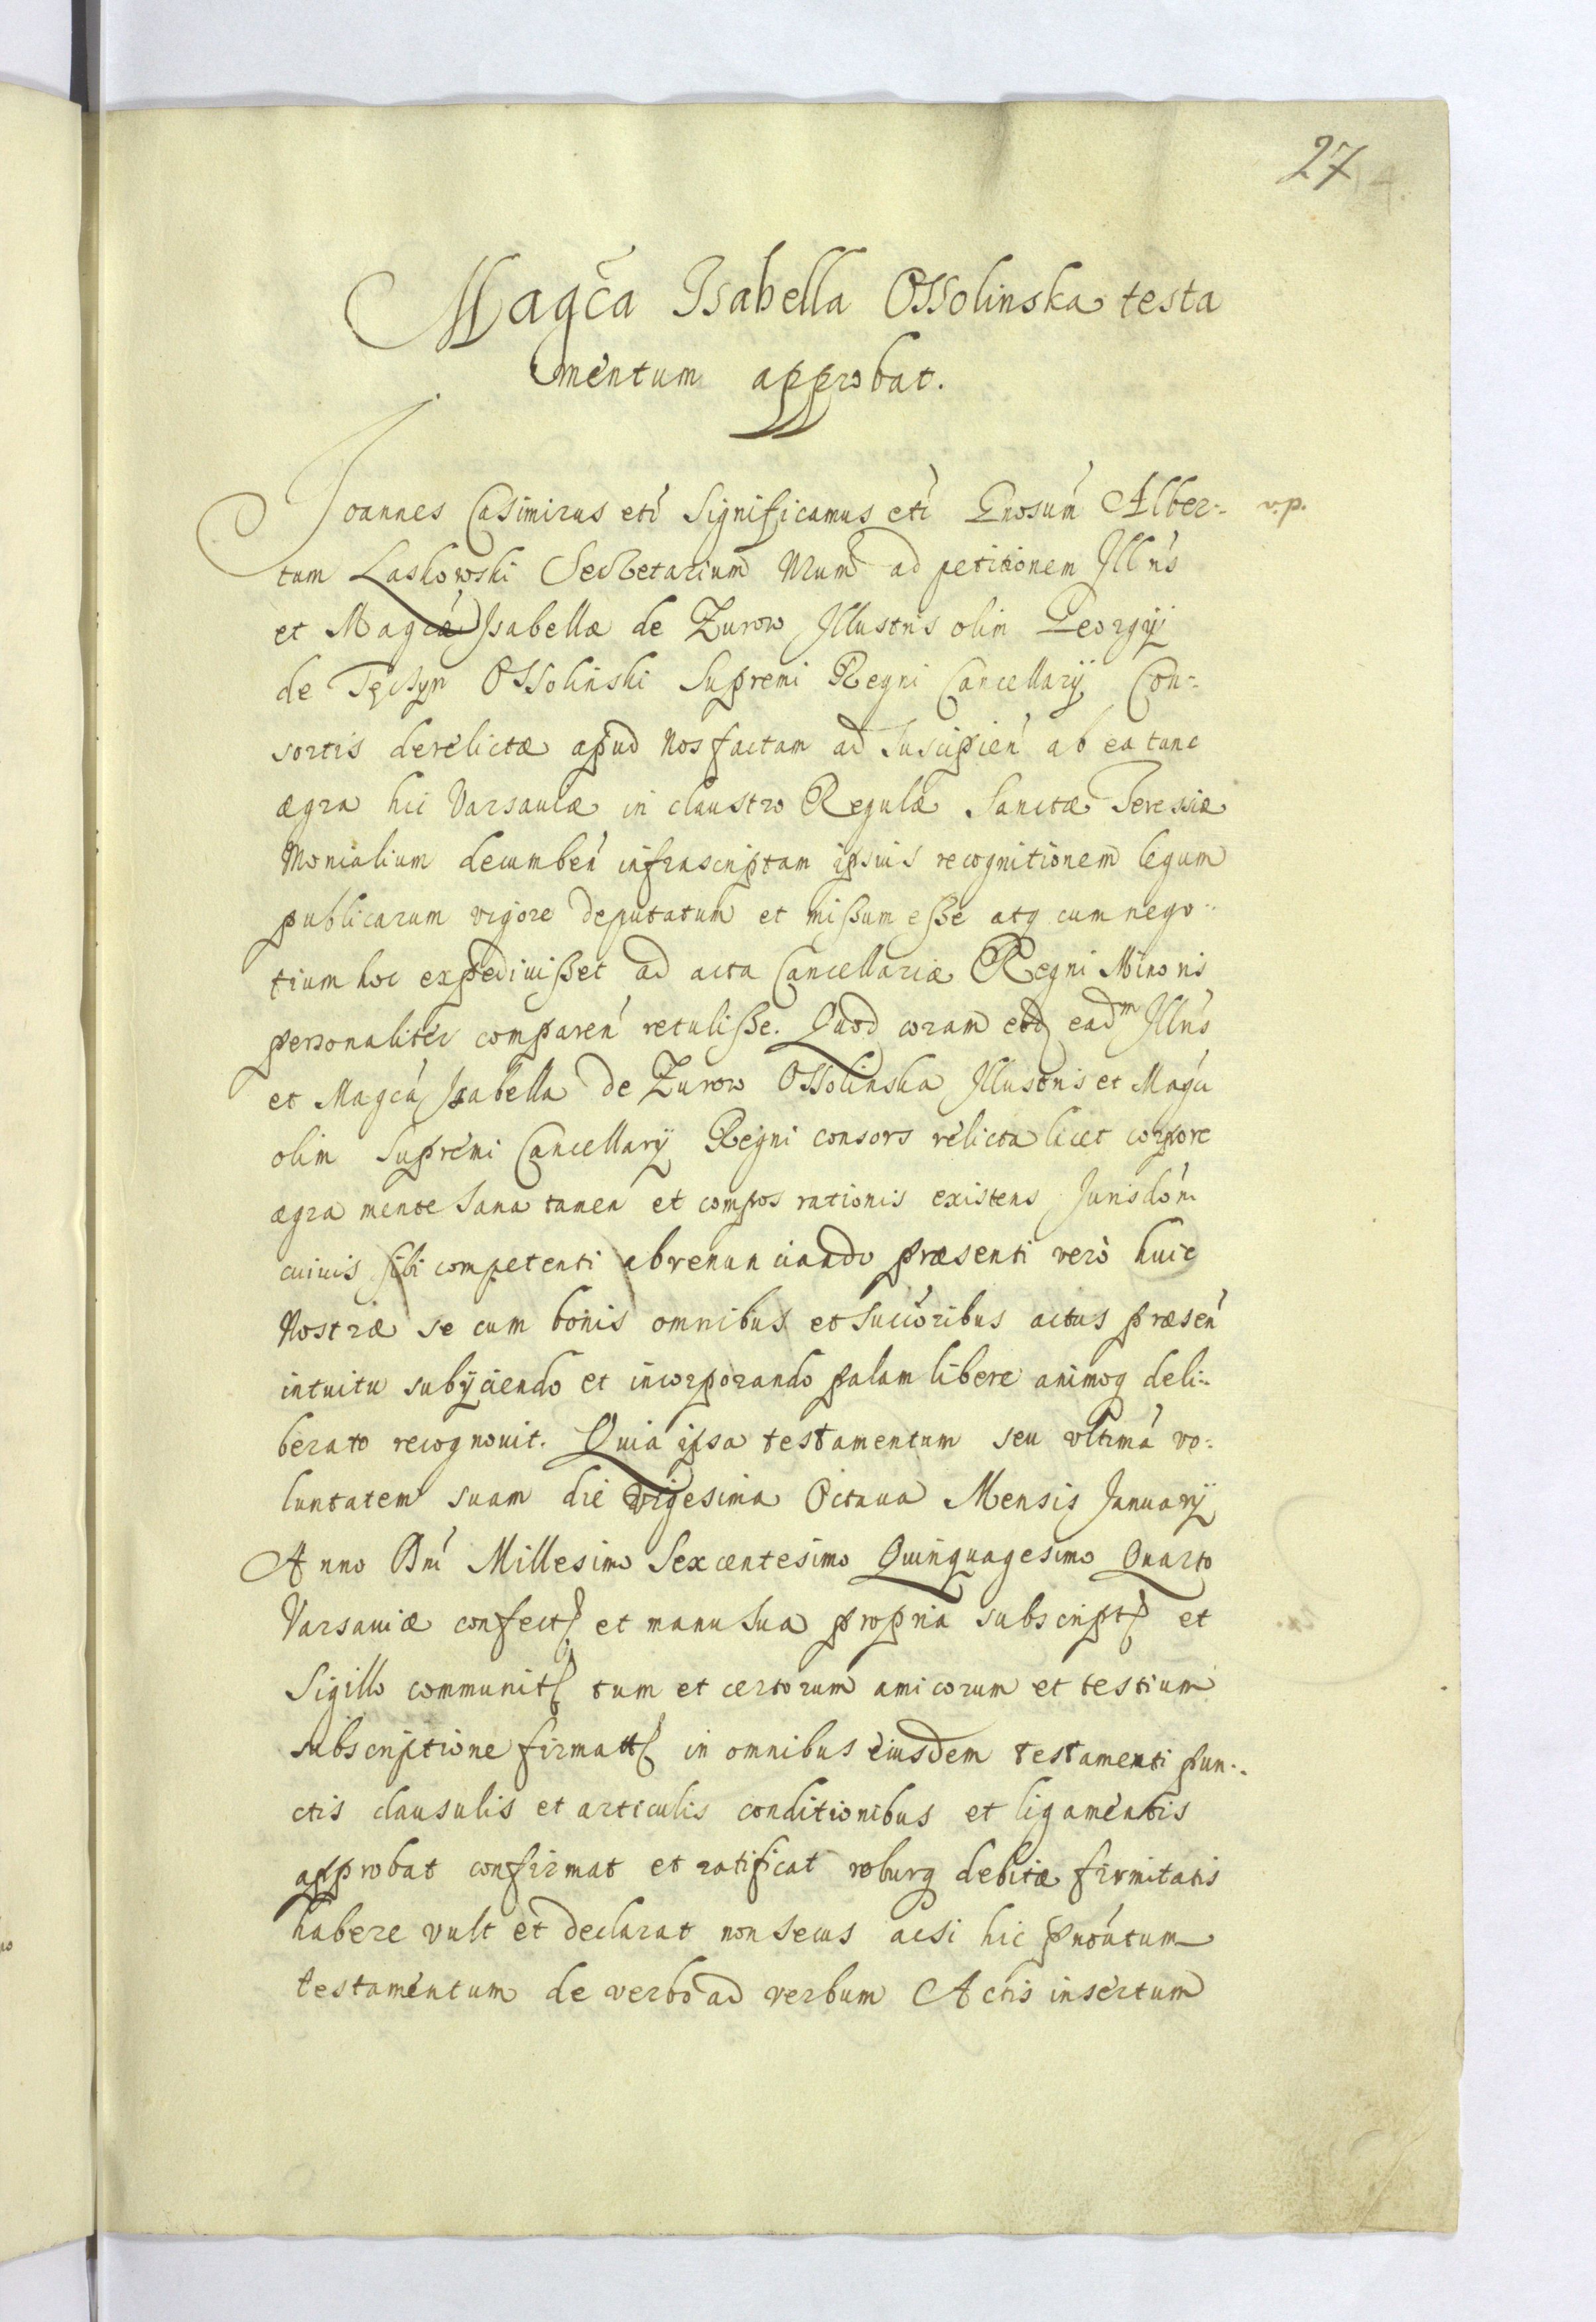 27
Magca Isabella Ossolinska testa
mentum approbat.
Joannes Casimirus etc Significamus etc Gnosum Alber-
v.p.
tum Laskowski Secretarium Nrum ad petitionem Illris
et Magcae Isabellae de Zurow Illustris olim Georgij
de Tęczyn Ossolinski Supremi Regni Cancellarij Con-
sortis derelictae apud Nos factam ad suscipien ab ea tunc
aegra hic Varsaviae in claustro Regulae Sanctae Teressiae
Monialium decumben infrascriptam ipsius recognitionem legum
publicarum vigore deputatum et missum esse atq cum nego-
tium hoc expedivisset ad acta Cancellariae Regni Minoris
personaliter comparen retulisse. Quod coram eod eadm Illris
et Magca Isabella de Zurow Ossolinska Illustris et Magci
olim Supremi Cancellarij Regni consors relicta licet corpore
aegra mente sana tamen et compos rationis existens Jurisdon
cuivis sibi competenti abrenunciando praesenti vero huic
Nostrae se cum bonis omnibus et succoribus actus praesen
intuitu subijciendo et incorporando palam libere animoq deli-
berato recognovit. Quia ipsa testamentum seu ultima vo-
luntatem suam die vigesima Octava Mensis Januarij
Anno Dni Millesimo Sexcentesimo Quinquagesimo Quarto
Varsaviae confect et manu sua propria subscript et
Sigillo communit tum et certorum amicorum et testium
subscriptione firmatt in omnibus eiusdem testamenti pun-
ctis clausulis et articulis conditionibus et ligamentis
approbat confirmat et ratificat roburq debitae firmitatis
habere vult et declarat non secus acsi hic pnoutum
testamentum de verbo ad verbum Actis insertum